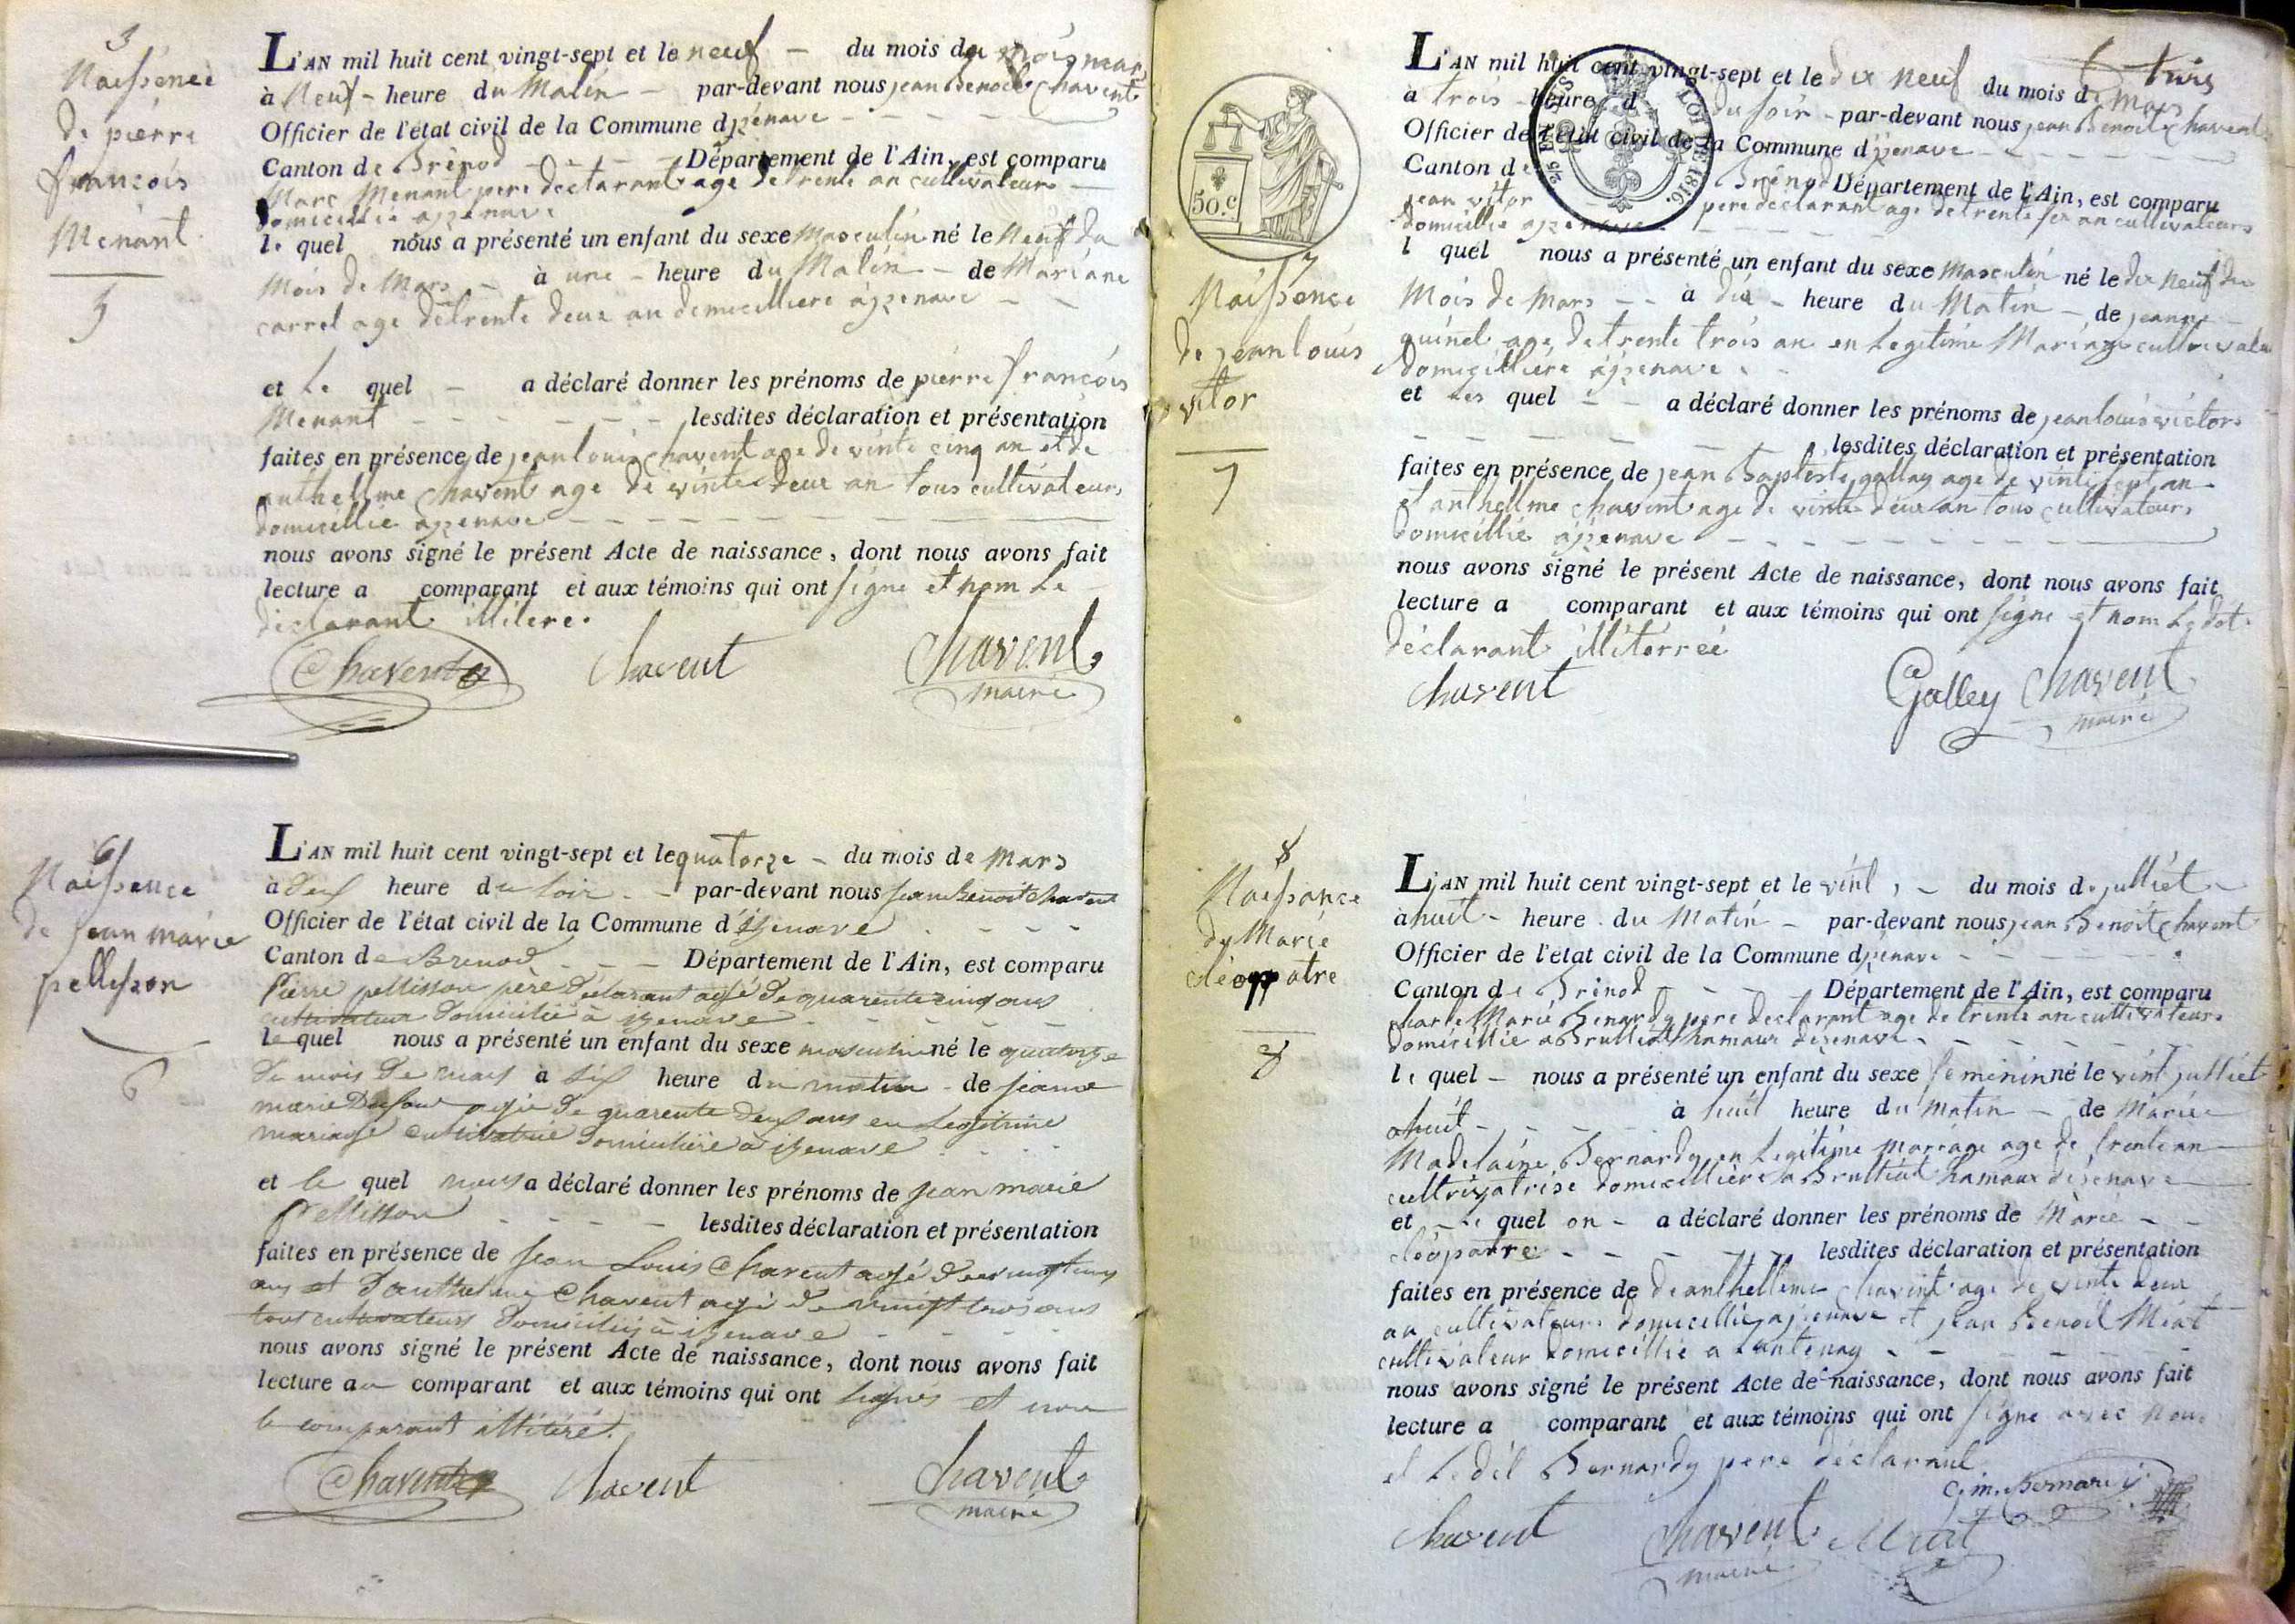 5
Naissence
de pierre
francois
Menant
5
L'AN mil huit cent vingt-sept et le neuf - du mois de mars
à Neuf - heure du Matin - par-devant nous jean Benoit Chavent
Officier de l'état civil de la Commune d'izenave
Canton de Brenod - Département de l'Ain, est comparu
Marc Menant pere declarant age de trente an cultivateur
domicillie a izenave
le quel nous a présenté un enfant du sexe Masculin né le Neuf du
Mois de Mars - à une - heure du Matin - de Mariane
carrel age de trente deux an domicilliere a izenave
et Le quel - a déclaré donner les prénoms de pierre francois
Menant - lesdites déclaration et présentation
faites en présence de jean louis chavent age de vinte cinq an et de
anthellme chavent age de vinte deux an tous cultivateurs
domicellie a izenave
nous avons signé le présent Acte de naissance, dont nous avons fait
lecture a comparant et aux témoins qui ont signe et nom Le
declarant illitere.
Chavent Chavent Chavent
maire
6
Naissence
de jean marie
pellisson
6
L'AN mil huit cent vingt-sept et le quatorze - du mois de Mars
à deux heure du soir - par-devant nous jean benoit chavent
Officier de l'état civil de la Commune d'izenave
Canton de Brenod - Département de l'Ain, est comparu
Pierre pellisson père declarant agé de quarente cinq ans
cultivateur domicilié à izenave
le quel nous a présenté un enfant du sexe masculin né le quatorze
du mois de mars à six heure du matin - de jeanne
marie Dufour agée de quarente deux ans en Legitime
mariage cultivatrice domiciliée à izenave
et le quel nous a déclaré donner les prénoms de jean marie
Pellisson - lesdites déclaration et présentation
faites en présence de jean Louis Chavent agé de
ans et d'anthelme Chavent agé de vingt trois ans
tous cultivateurs domiciliés à izenave
nous avons signé le présent Acte de naissance, dont nous avons fait
lecture au comparant et aux témoins qui ont signés et non
le comparant illitéré.
Chavent Chavent Chavent
maire
50.c
LOI DE 1816.
7
Naissence
de jean louis
vitor
7
L'AN mil huit cent vingt-sept et le dix Neuf du mois de Mars
à trois heure du soir - par-devant nous jean Benoit Chavent
Officier de l'état civil de la Commune d'izenave
Canton de Brenod Département de l'Ain, est comparu
jean vitor pere declarant age de trente six an cultivateurs
domicillie a izenave
l quel nous a présenté un enfant du sexe Masculin né le dix Neuf du
Mois de Mars - à dix - heure du Matin - de jeanne
quinet age de trente trois an en Legitime Mariage
domicilliére a izenave
et Les quel - a déclaré donner les prénoms de jean louis victor
lesdites déclaration et présentation
faites en présence de jean Baptiste gallay age de vinte sept an
et anthellme chavent age de vinte deux an tous cultivateurs
domicillie a izenave
nous avons signé le présent Acte de naissance, dont nous avons fait
lecture a comparant et aux témoins qui ont signe et nom Ledot
déclarant illitérrée
Chavent Galley Chavent
maire
8
Naissance
de Marie
cléoppatre
8
L'AN mil huit cent vingt-sept et le vint, - du mois de julliét
à huit - heure du Matin - par-devant nous jean Benoit Chavent
Officier de l'état civil de la Commune d'izenave
Canton de Brenod - Département de l'Ain, est comparu
Marie Benardy pere declarant age de trente an cultivateur
domicillie a Brulliat hamaux dizenave
le quel - nous a présenté un enfant du sexe feminin né le vint julliét
ahuit - à huit heure du matin - de Marie
Madelaine Bernardy en Legitime Marriage age de trente an
cultrivatrise domicilliére a Brulliat hamaux dizenave
et Le quel on - a déclaré donner les prénoms de Marie
cléopatre - lesdites déclaration et présentation
faites en présence de de anthellme chavent age de vinte deux
an cultivateur domicellie a izenave et jean Benoit Miat
cultivateur domicillié a Lantenay
nous avons signé le présent Acte de naissance, dont nous avons fait
lecture a comparant et aux témoins qui ont signe avec nous
et Ledit Bernardy pere déclarant
C. m. Bernardy
Chavent Chavent Miat
maire